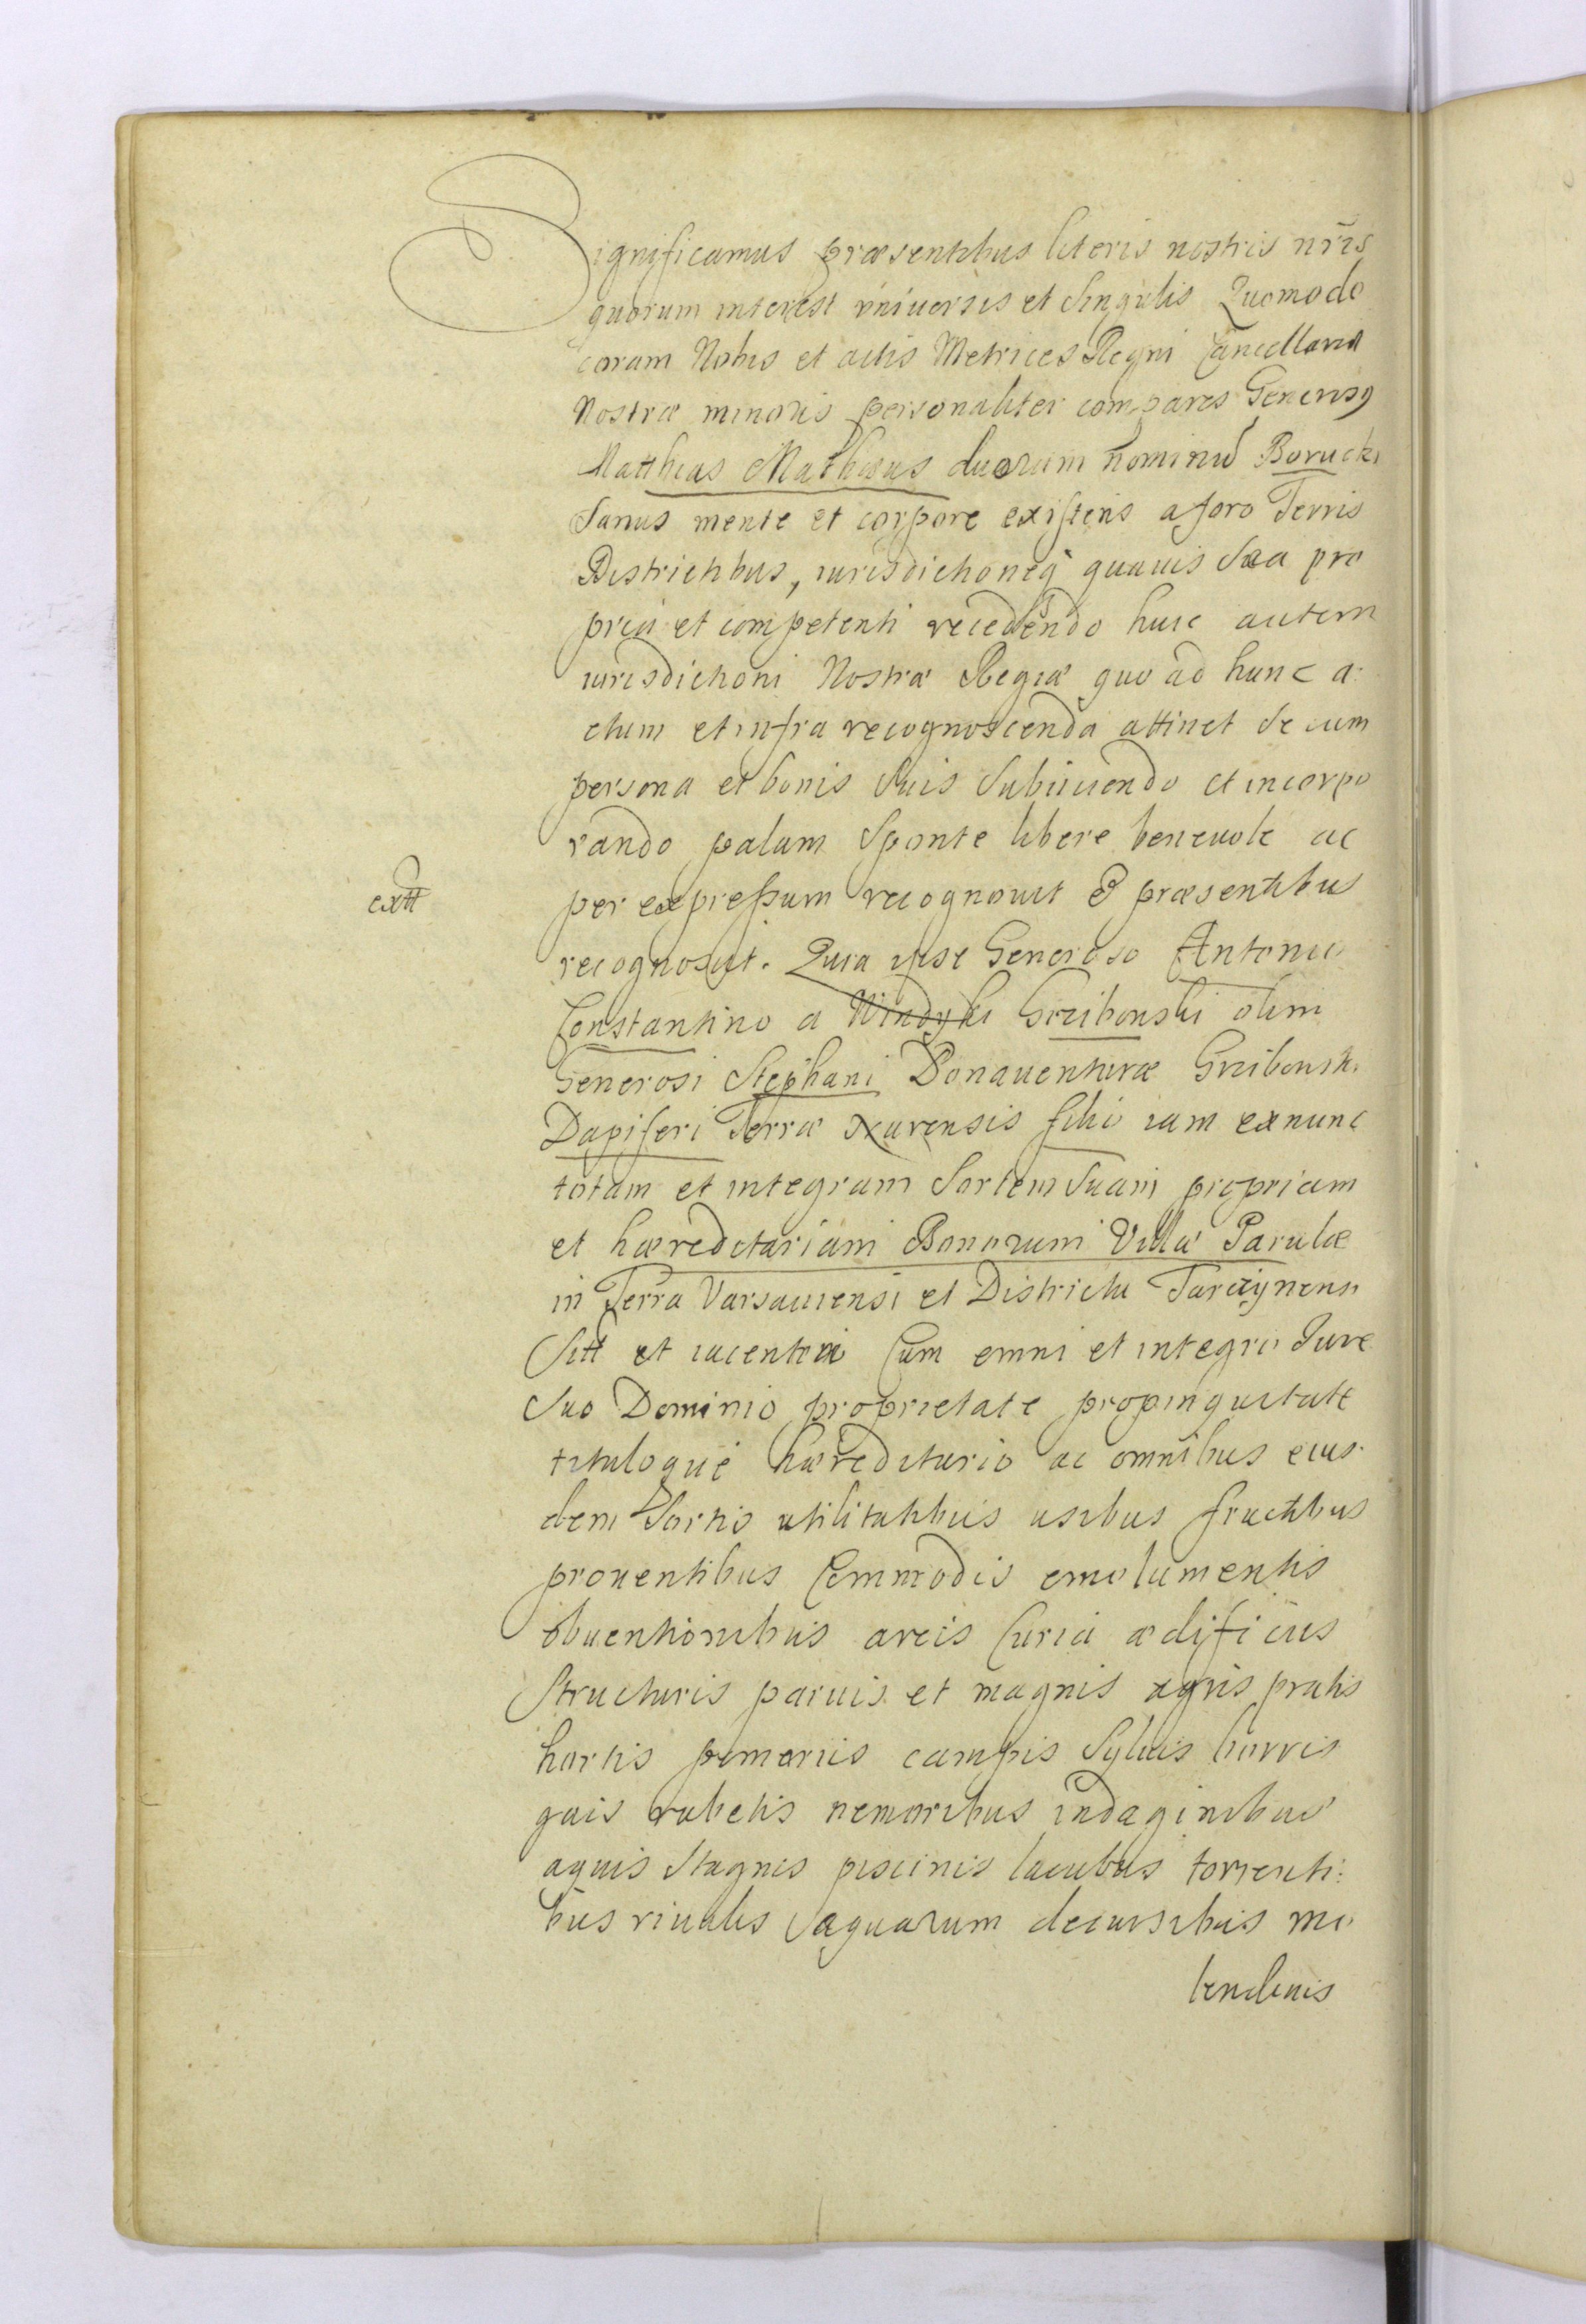 Significamus præsentibus literis nostris nr̃is
quorum interest vniuersis et singulis Quomodo
coram Nobis et actis Metrices Regni Cancellaria
Nostræ minoris personaliter compares Generosq
Matthias Mathæus duorum nominũ Borucki
Sanus mente et corpore existens a foro Terris
Districtibus, iurisdictioneq quauis sua pro
pria et competenti recedendo huic autem
iurisdictioni Nostræ Regiæ quo ad hunc a:
ctum et infra recognoscenda attinet se cum
persona et bonis suis subiiciendo et incorpo
rando palam sponte libere beneuole ac
extt
per expressum recognouit & præsentibus
recognoscit. Quia ipse Generoso Antonio
Constantino a Grzibowski olim
Generosi Stephani Bonauenturæ Grzibowski
Dapiferi Terræ filio iam ex nunc
totam et integram Sortem suam propriam
et hæreditariam Bonorum Villæ Parulæ
in Terra Varsauiensi et Districtu Tarczynensi
Sitt et iacentem Cum omni et integro Jure
suo Dominio proprietate propinquitate
tituloque hæreditario ac omnibus eius
dem Sortis utilitatibus usibus fructibus
prouentibus Commodis emolumentis
obuentionibus areis Curia ædificiis
Structuris paruis et magnis agris pratis
hortis pomariis campis Syluis borris
gais rubetis nemoribus indaginibus
aquis stagnis piscinis lacubus torrenti:
bus riuulis aquarum decursibus mo
lendinis